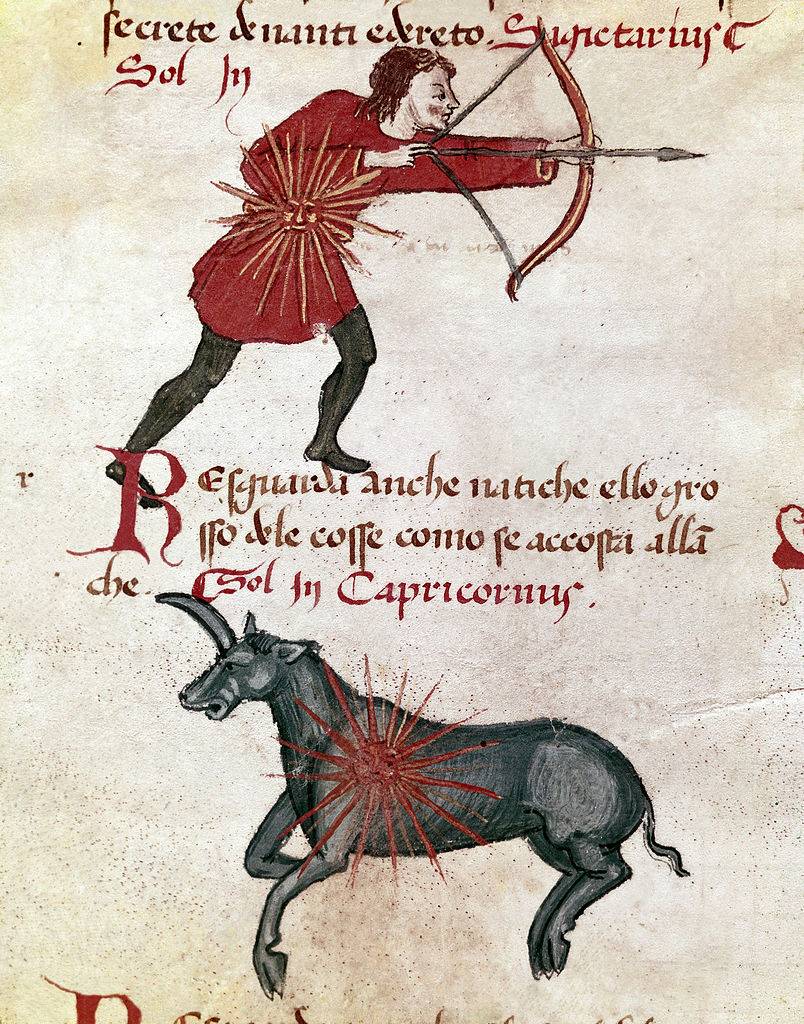 secrete denanti edereto. Sagictarius
Sol In
REsguarda anche natiche ello gro
sso dele cosse como se accosta allā
che. Sol In Capricornus.